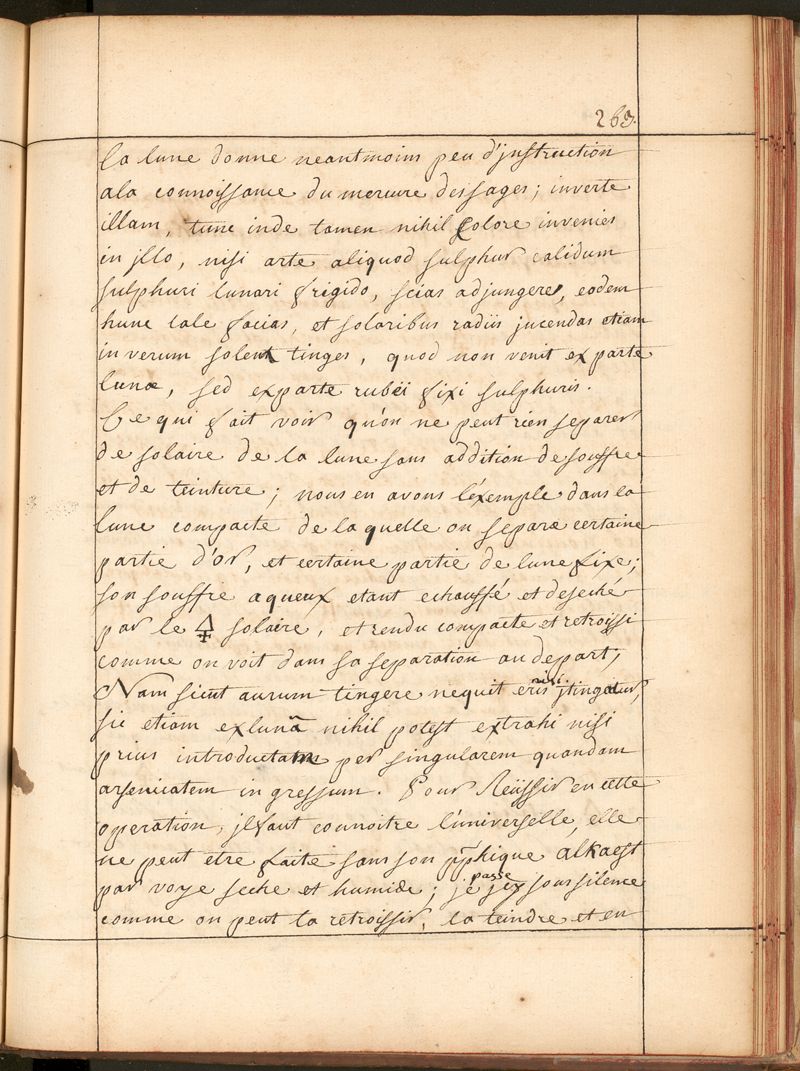 263.
la lune donne neantmoins peu d'jnstruction
ala connoissance du mercure des sages; inverte
illam, tunc inde tamen nihil colore invenies
in jllo, nisi arte aliquod sulphur calidum
sulphuri lunari frigido, scias adjungere, eodem
hunc tale facias, et solaribus radiis jucendas etiam
in verum solem tinges, quod non venit ex parte
lunæ, sed ex parte rubei fixi sulphuris.
Ce qui fait voir qu'on ne peut rien separer
de solaire de la lune sans addition de souffre
et de teinture; nous en avons l'éxemple dans la
lune compacte de la quelle on separe certaine
partie d'or, et certaine partie de lune fixe;
son souffre aqueux etant echauffé et deseché
par le 🜍 solaire, et rendu compacte et retroissi
comme on voit dans sa separation au depart,
Nam sicut aurum tingere nequit nisi jtingatur,
sic etiam ex lunâ nihil potest extrahi nisi
prius introductam per singularem quandam
arsenicatem ingressum. Pour Reüssir en cette
operation, jl faut connoitre l'universelle, elle
ne peut etre faite sans son pp̃hique alkaest
par voye seche et humide; je passe jcy sous silence
comme on peut la retroissir, la teindre et en